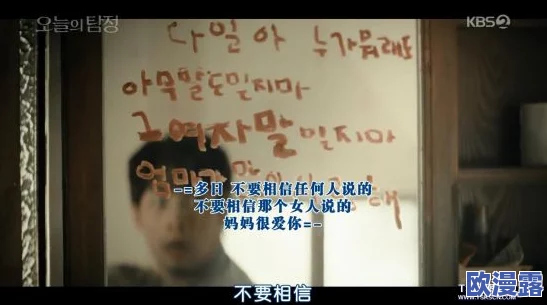 오늘의탐정
KBS2
다일아 누가뭐래도
아무말도믿지마
그여자말믿지마
엄마가
-=多日 不要相信任何人说的
不要相信那个女人说的
妈妈很爱你=-
不要相信
欧漫露